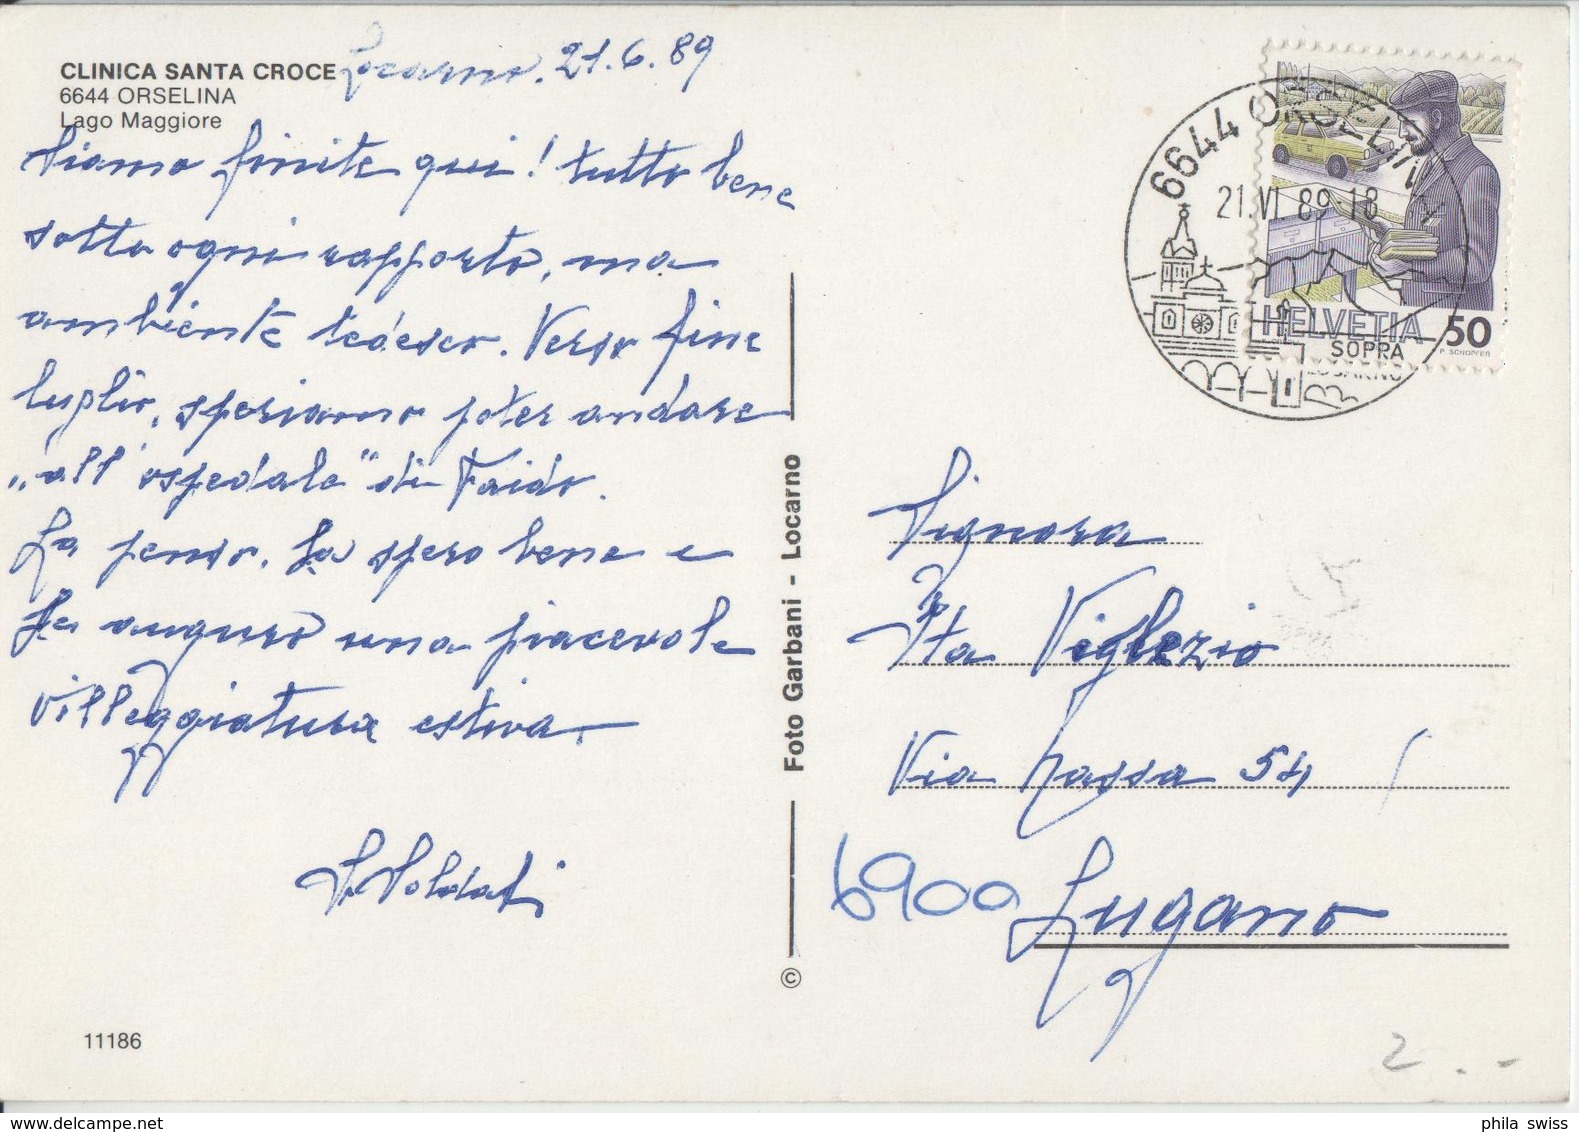 CLINICA SANTA CROCE
6644 ORSELINA
Lago Maggiore
Locarno, 21.6.89
Siamo finite qui! tutto bene
sotto ogni rapporto, ma
ambiente tedesco. Verso fine
luglio, speriamo poter andare
„all'ospedale" di Faido.
La penso, La spero bene e
Le auguro una piacevole
villeggiatura estiva.
Soldati
11186
Foto Garbani - Locarno
©
6644 ORSELINA
21.VI.89-18
SOPRA
LOCARNO
HELVETIA 50
P. SCHOPFER
Signora
Ita Viglezio
Via Massa 54
6900 Lugano
2.-
phila swiss